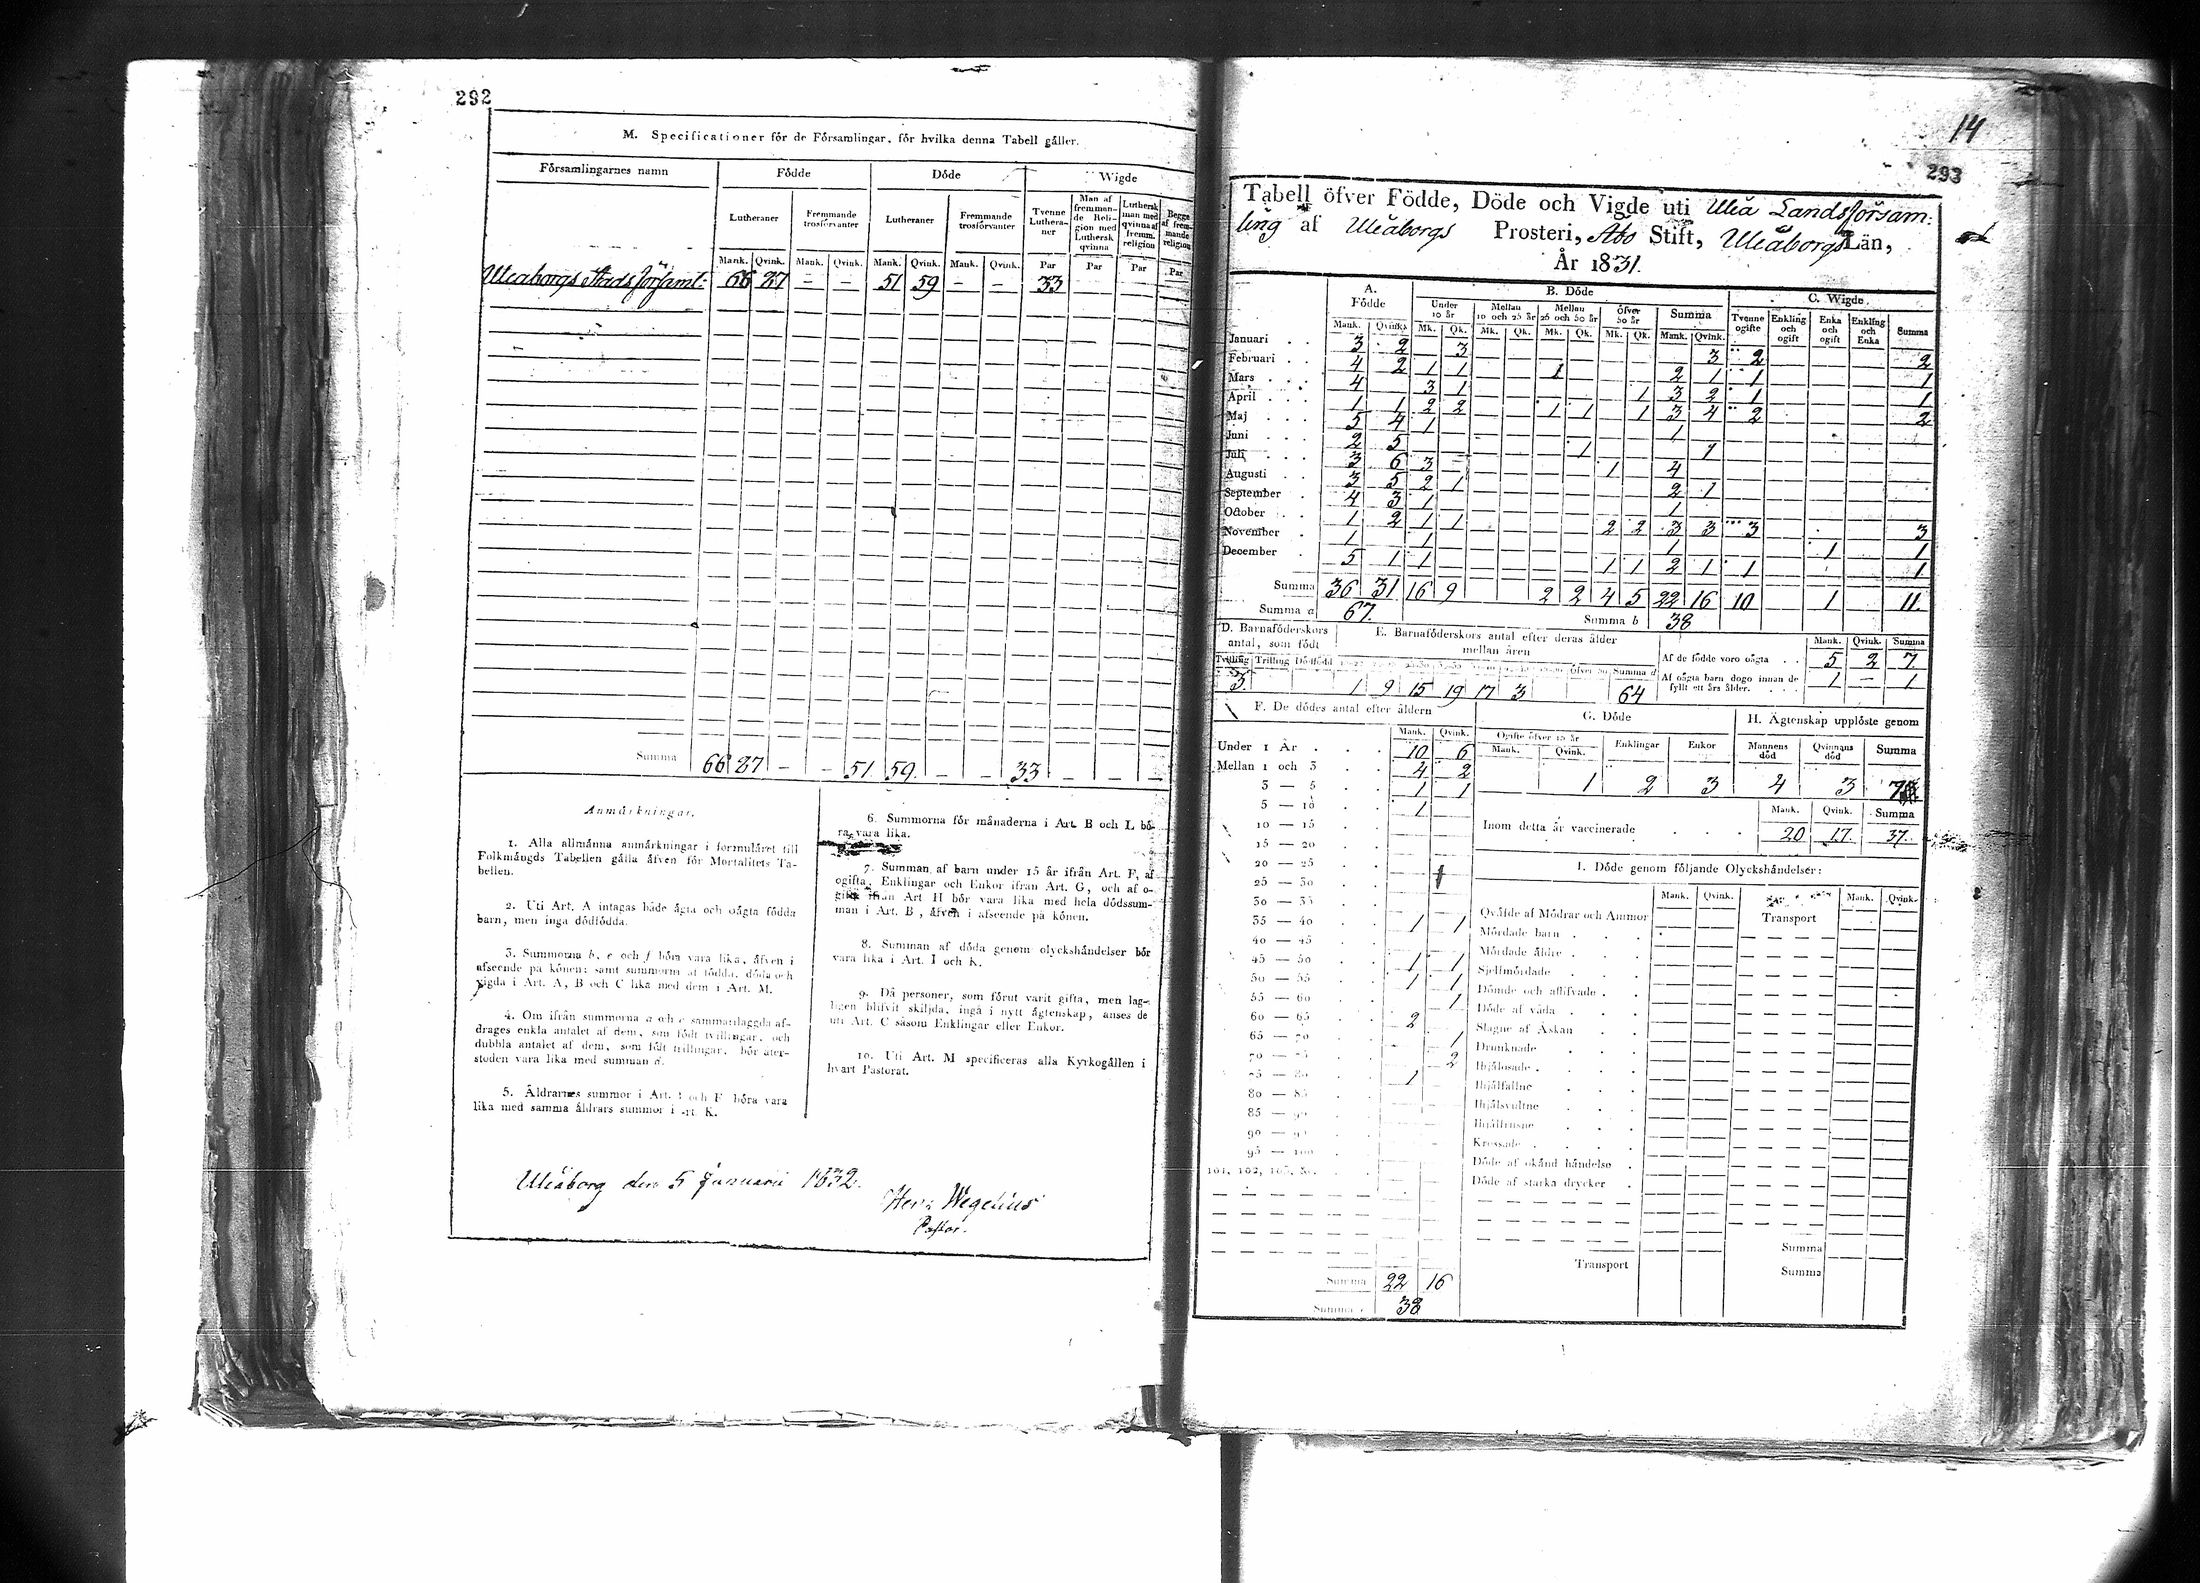 292
M. Specificationer för de Församlingar, för hvilka denna Tabell gäller.
Församlingarnes namn Födde Döde Wigde
Lutheraner Fremmande trosförvanter Lutheraner Fremmande trosförvanter Tvenne Lutheraner Man af fremmande Religion med Luthersk qvinna Luthersk man med qvinna af fremm. religion Begge af fremmande religion
Mank. Qvink. Mank. Qvink. Mank. Qvink. Mank. Qvink. Par Par Par Par
Uleåborgs Stads församl: 66 87 — — 51 59 — — 33
Summa 66 87 — — 51 59 — — 33 — — —
Anmärkningar.
1. Alla allmänna anmärkningar i formuläret till
Folkmängds Tabellen gälla äfven för Mortalitets Ta-
bellen.
2. Uti Art. A intagas både ägta och oägta födda
barn, men inga dödfödda.
3. Summorna b, e och f böra vara lika, äfven i
afseende på könen; samt summorna af födda, döda och
vigda i Art. A, B och C lika med dem i Art. M.
4. Om ifrån summorna a och c sammanlaggda af-
drages enkla antalet af dem, som födt tvillingar, och
dubbla antalet af dem, som födt trillingar, bör åter-
stoden vara lika med summan d.
5. Åldrarnes summor i Art. I och F böra vara
lika med samma åldrars summor i Art. K.
6. Summorna för månaderna i Art. B och L bö-
ra vara lika.
7. Summan af barn under 15 år ifrån Art. F, af
ogifta, Enklingar och Enkor ifrån Art. G, och af o-
gifta ifrån Art H bör vara lika med hela dödssum-
man i Art. B, äfven i afseende på könen.
8. Summan af döda genom olyckshändelser bör
vara lika i Art. I och K.
9. Då personer, som förut varit gifta, men lag-
ligen blifvit skiljda, ingå i nytt ägtenskap, anses de
uti Art. C såsom Enklingar eller Enkor.
10. Uti Art. M specificeras alla Kyrkogällen i
hvart Pastorat.
Uleåborg den 5 Januarii 1832.
Her: Wegelius
Pastor.
14
293
Tabell öfver Födde, Döde och Vigde uti Uleå Landsförsam:
ling af Uleåborgs Prosteri, Åbo Stift, Uleåborgs Län,
År 1831.
A. Födde B. Döde C. Wigde
Under 10 år Mellan 10 och 25 år Mellan 25 och 50 år Öfver 50 år Summa Tvenne ogifte Enkling och ogift Enka och ogift Enkling och Enka Summa
Mank. Qvink. Mk. Qk. Mk. Qk. Mk. Qk. Mk. Qk. Mank. Qvink.
Januari 3 2 3 3 2 2
Februari 4 2 1 1 1 2 1 1 1
Mars 4 3 1 1 3 2 1 1
April 1 1 2 2 1 1 1 3 4 2 2
Maj 5 4 1 1
Juni 2 5 1 1
Juli 3 6 3 1 4
Augusti 3 5 2 1 2 1
September 4 3 1 1
October 1 2 1 1 2 2 3 3 3 3
November 1 1 1 1 1
December 5 1 1 1 1 2 1 1 1
Summa 36 31 16 9 2 2 4 5 22 16 10 1 11.
Summa a 67. Summa b 38
D. Barnaföderskors antal, som födt
Tvilling Trilling Dödfödd
3.
E. Barnaföderskors antal efter deras ålder mellan åren
Öfver 50 Summa d
1 9 15 19 17 3 64
Mank. Qvink. Summa
Af de födde voro oägta 5 2 7.
Af oägta barn dogo innan de fyllt ett års ålder. 1 — 1
F. De dödes antal efter åldern
Mank. Qvink.
Under 1 År 10 6
Mellan 1 och 3 4 2
3 — 5 1 1
5 — 10 1
10 — 15
15 — 20
20 — 25
25 — 30
30 — 35
35 — 40 1 1
40 — 45
45 — 50 1 1
50 — 55 1 1
55 — 60 1
60 — 65 2
65 — 70 1
70 — 75 2
75 — 80 1
80 — 85
85 — 90
90 — 95
95 — 100
101, 102, 103, &c.
Summa 22 16
38
G. Döde
Ogifte öfver 15 år Enklingar Enkor
Mank. Qvink.
1 2 3
H. Ägtenskap upplöste genom
Mannens död Qvinnans död Summa
4 3 7
Mank. Qvink. Summa
Inom detta år vaccinerade 20 17. 37.
I. Döde genom följande Olyckshändelser:
Mank. Qvink. Transport Mank. Qvink.
Qväfde af Mödrar och Ammor
Mördade barn
Mördade äldre
Sjelfmördade
Dömde och aflifvade
Döde af våda
Slagne af Åskan
Drunknade
Ihjälosade
Ihjälfallne
Ihjälsvultne
Ihjälfrusne
Krossade
Döde af okänd händelse
Döde af starka drycker
Transport
Summa
Summa